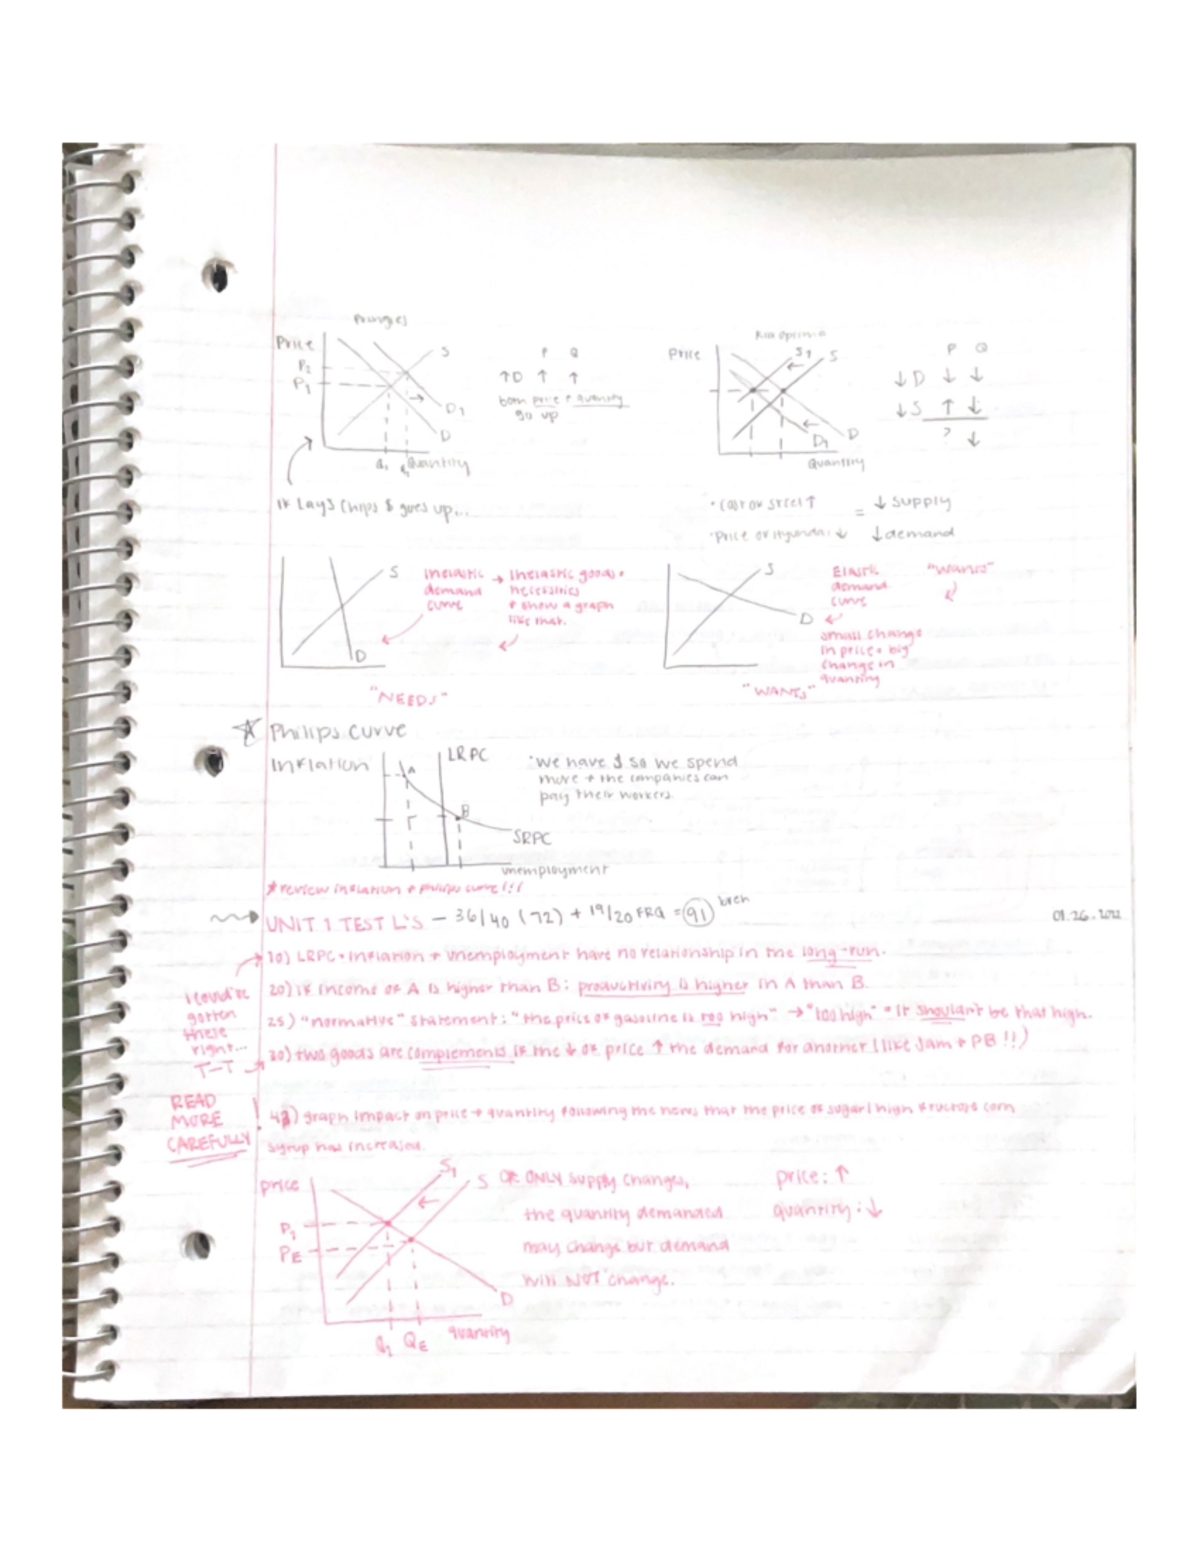 Pringles
Price
P2
P1
S
D1
D
Q1
Quantity
P Q
↑D ↑ ↑
both price & quantity
go up
If Lays Chips $ goes up...
Kia Optima
Price
S1
S
D1
D
Quantity
P Q
↓D ↓ ↓
↓S ↑ ↓
? ↓
• Cost of steel ↑ = ↓ supply
• Price of Hyundai ↓ ↓ demand
S
D
inelastic
demand
curve
→ inelastic goods =
necessities
& show a graph
like that.
"NEEDS"
S
D
Elastic
demand
curve
"wants"
small change
in price = big
change in
quantity
"WANTS"
☆ Philips Curve
Inflation
LRPC
A
B
SRPC
unemployment
• We have $ so we spend
more & the companies can
pay their workers.
* review inflation & philips curve!!!
UNIT 1 TEST L'S — 36/40 (72) + 19/20 FRQ = 91 bteh
01.26.2022
10) LRPC = Inflation & Unemployment have no relationship in the long-run.
20) if income of A is higher than B: productivity is higher in A than B.
25) "normative" statement: "the price of gasoline is too high" → "too high" = it shouldn't be that high.
30) two goods are complements if the ↓ of price ↑ the demand for another (like Jam & PB!!)
I could've
gotten
these
right...
T-T
READ
MORE
CAREFULLY
!
graph impact on price & quantity following the news that the price of sugar/high fructose corn
syrup has increased.
price
P1
PE
S1
S
D
Q1
QE
quantity
ONLY supply changes,
the quantity demanded
may change but demand
will NOT change.
price: ↑
quantity: ↓